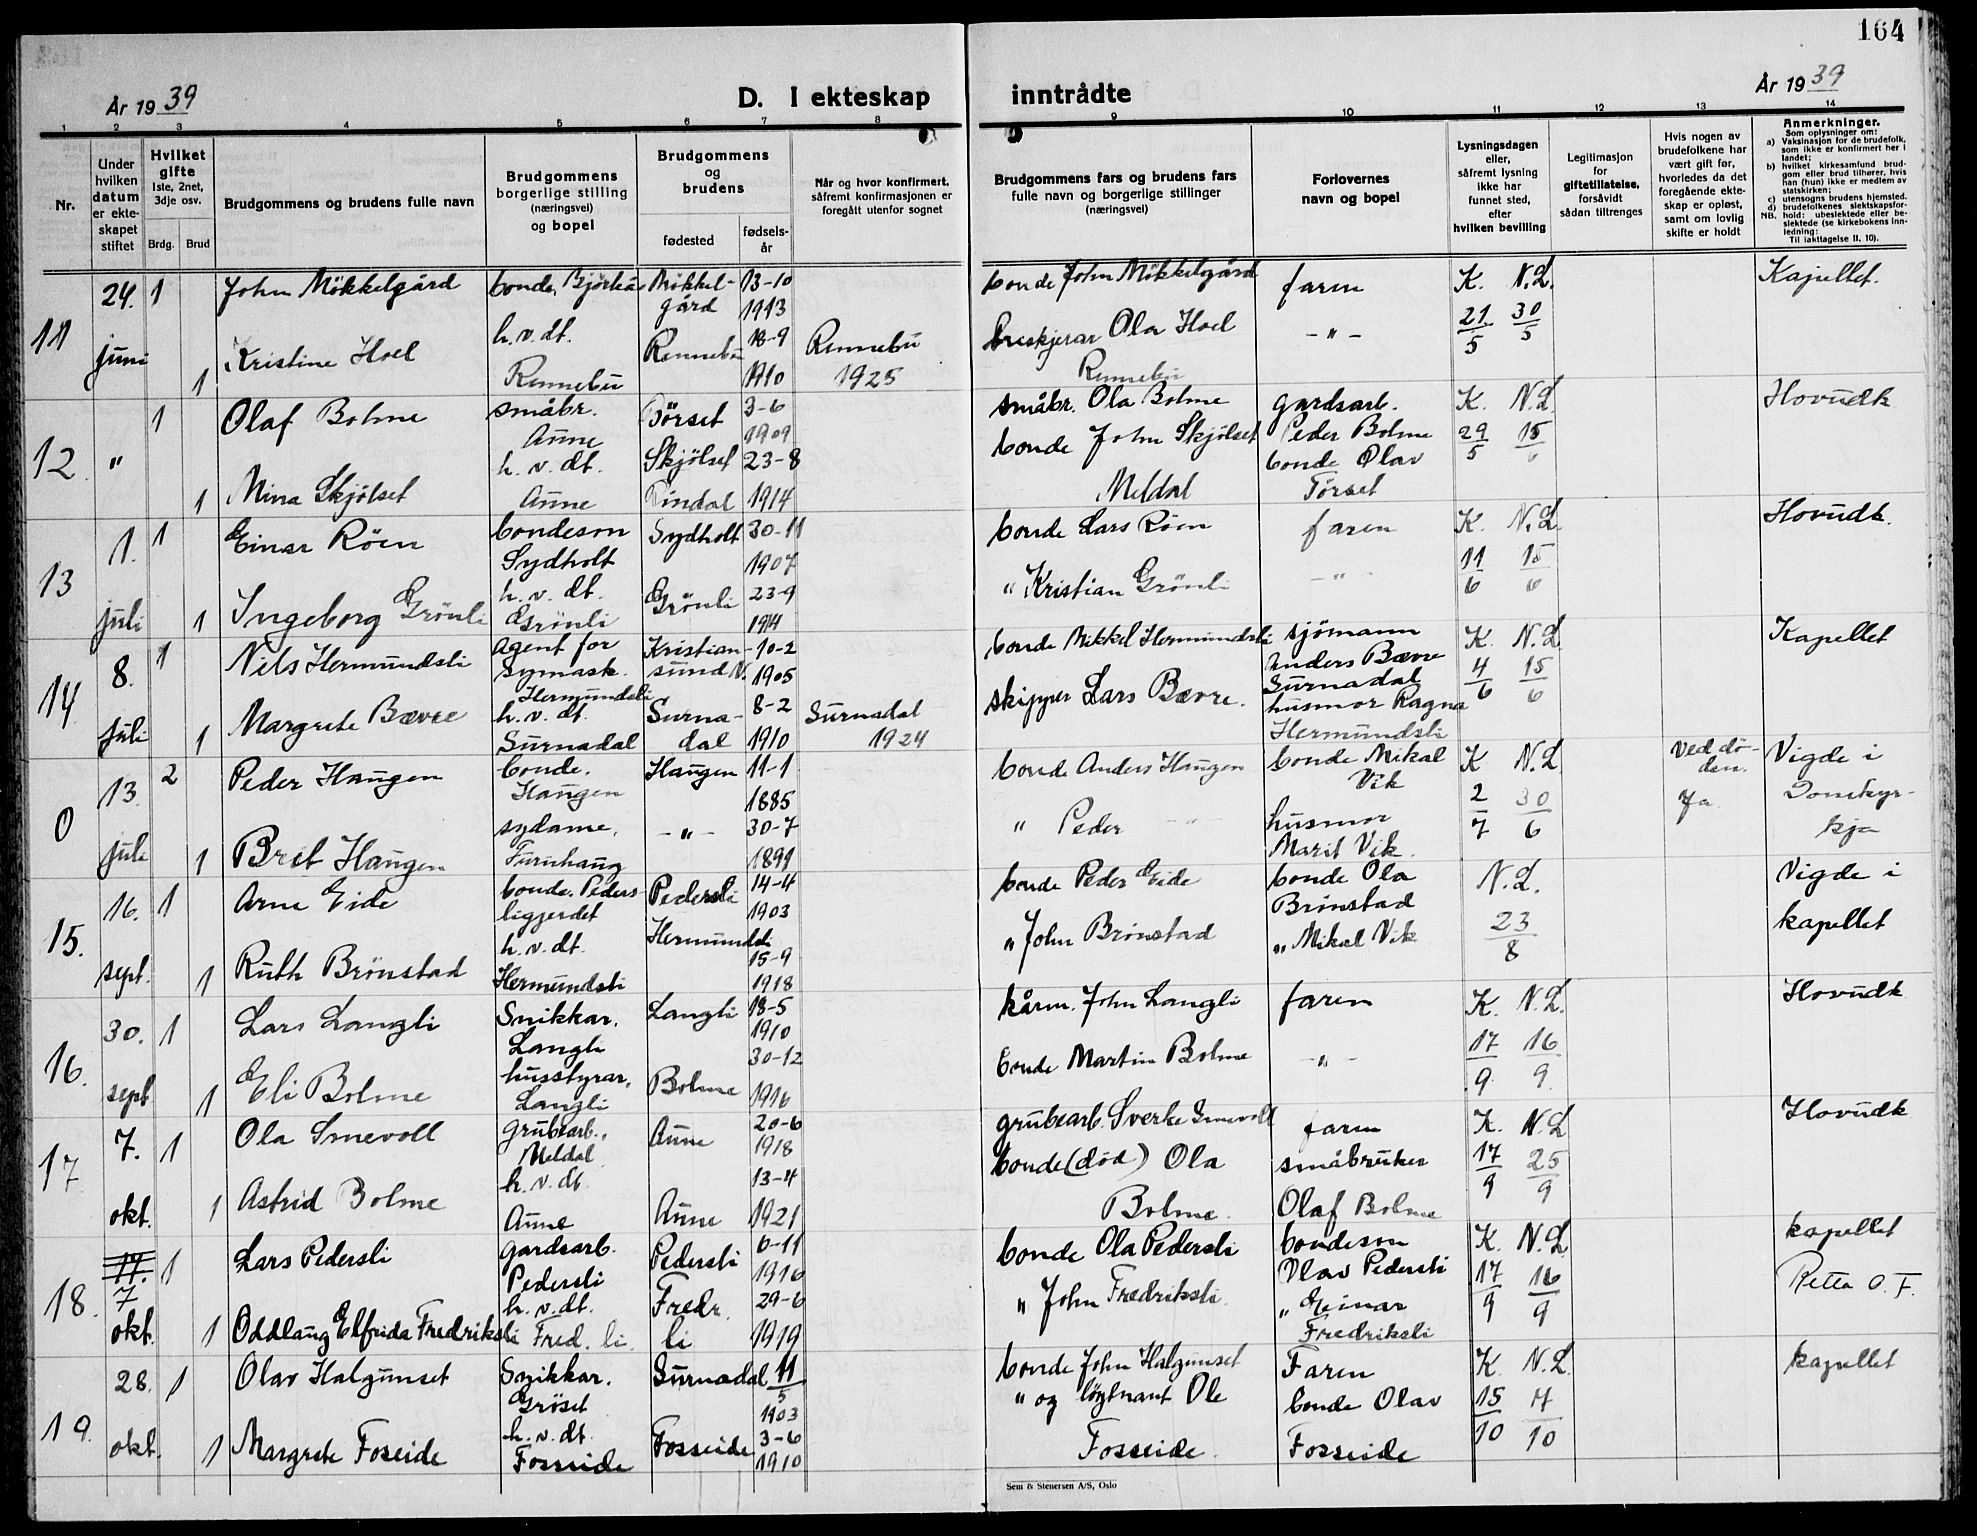 164
År 19 39
D. I ekteskap
inntrådte
År 19 39
1 2 3 4 5 6 7 8 9 10 11 12 13 14
Nr.
Under hvilken datum er ekteskapet stiftet
Hvilket gifte
1ste, 2net, 3dje osv.
Brdg. Brud
Brudgommens og brudens fulle navn
Brudgommens borgerlige stilling (næringsvei) og bopel
Brudgommens og brudens
fødested
fødselsår
Når og hvor konfirmert, såfremt konfirmasjonen er foregått utenfor sognet
Brudgommens fars og brudens fars fulle navn og borgerlige stillinger (næringsvei)
Forlovernes navn og bopel
Lysningsdagen eller, såfremt lysning ikke har funnet sted, efter hvilken bevilling
Legitimasjon for giftetillatelse, forsåvidt sådan tiltrenges
Hvis nogen av brudefolkene har vært gift før, hvorledes da det foregående ekteskap er opløst, samt om lovlig skifte er holdt
Anmerkninger.
Som oplysninger om:
a) Vaksinasjon for de brudefolk, som ikke er konfirmert her i landet;
b) hvilket kirkesamfund brudgom eller brud tilhører, hvis han (hun) ikke er medlem av statskirken;
c) utensogns brudens hjemsted.
d) brudefolkenes slektskapsforhold: ubeslektede eller beslektede (se kirkebokens innledning:
NB. Til iakttagelse II. 10).
11 24. juni 1 John Mökkelgård bonde, Björkås Mökkelgård 13-10 1913 bonde John Mökkelgård faren K. N.L. 21/5 30/5 Kapellet.
1 Kristine Hoel h.v.dt. Rennebu Rennebu 18-9 1910 Rennebu 1925 Ola Hoel Rennebu - " -
12 " 1 Olaf Bolme småbr. Aune Børset 3-6 1909 småbr. Ola Bolme gardsarb. Peder Bolme K. N.L. 29/5 15/6 Hovudk
1 Mina Skjölset h.v.dt. Aune Skjölset Rindal 23-8 1914 bonde John Skjölset Meldal bonde Olav Tørset
13 1. juli 1 Einar Röen bondeson Sydholt Sydholt 30-11 1907 bonde Lars Röen faren K. N.L. 11/6 15/6 Hovudk.
1 Ingeborg Grönli h.v.dt. Grönli Grönli 23-9 1914 " Kristian Grönli - " -
14 8. juli 1 Nils Hermundsli agent for symask. Hermundsli Kristiansund N. 10-2 1905 bonde Mikkel Hermundsli sjömann Anders Bævre Surnadal K. N.L. 4/6 15/6 Kapellet
1 Margrete Bævre h.v.dt. Surnadal Surnadal 8-2 1910 Surnadal 1924 skipper Lars Bævre. husmor Ragna Hermundsli
0 13. juli 2 Peder Haugen bonde. Haugen Haugen 11-1 1885 bonde Anders Haugen bonde Mikal Vik K N.L. 2/7 30/6 Ved döden. Ja Vigde i Domkyrkja
1 Brit Haugen sydame, Furuhaug - " - 30-7 1899 " Peder - " - husmor Marit Vik.
15. 16. sept. 1 Arne Eide bonde. Pedersliggerdet Pedersli 14-4 1903 bonde Peder Eide bonde Ola Brönstad N.L. 23/8 Vigde i kapellet
1 Ruth Brönstad h.v.dt. Hermundsli Hermundsli 15-9 1918 " John Brönstad " Mikal Vik
16. 30. sept 1 Lars Langli Snikkar. Langli Langli 18-5 1910 kårm. John Langli faren K. N.L. 17/9 16/9 Hovudk
1 Eli Bolme husstyrar, Langli Bolme 30-12 1916 bonde Martin Bolme - " -
17 7. okt. 1 Ola Smevoll grubearb., Meldal Aune 20-6 1918 grubearb. Sverke Smevoll faren K. N.L 17/9 25/9 Hovudk
1 Astrid Bolme h.v.dt. Aune Aune 13-4 1921 bonde (död) Ola Bolme. småbruker Olaf Bolme
18. 7 okt. 1 Lars Pedersli gardsarb. Pedersli Pedersli 6-11 1916 bonde Ola Pedersli bondeson Olav Pedersli K. N.L 17/9 16/9 kapellet
1 Oddlaug Elfrida Fredriksli h.v.dt. Fred.li. Fredr.li 29-6 1919 " John Fredriksli. " Einar Fredriksli Retta O. F.
19. 28. okt. 1 Olav Halgunset Snikkar. Gröset Surnadal 11/5 1903 bonde John Halgunset Faren K. N.L. 15/10 4/10 kapellet
1 Margrete Foseide h.v.dt. Fosseide Fosseide 3-6 1910 " og löytnant Ole Fosseide. bonde Olav Fosseide
Sem & Stenersen A/S, Oslo